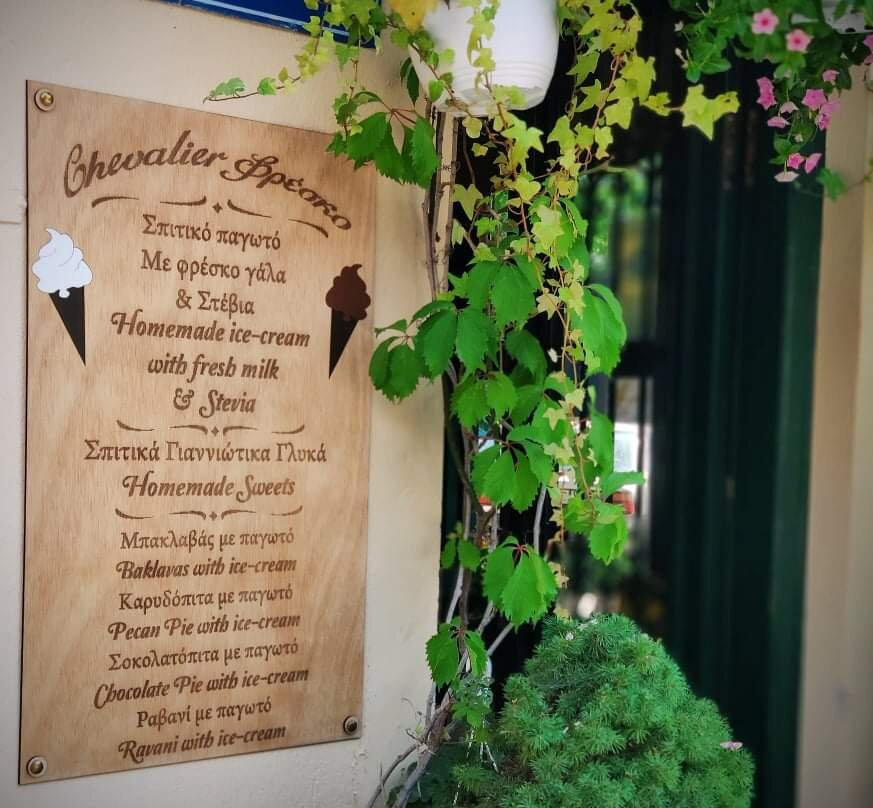 Chevalier Φρέσκο
Σπιτικό παγωτό
Με φρέσκο γάλα
& Στέβια
Homemade ice-cream
with fresh milk
& Stevia
Σπιτικά Γιαννιώτικα Γλυκά
Homemade Sweets
Μπακλαβάς με παγωτό
Baklavas with ice-cream
Καρυδόπιτα με παγωτό
Pecan Pie with ice-cream
Σοκολατόπιτα με παγωτό
Chocolate Pie with ice-cream
Ραβανί με παγωτό
Ravani with ice-cream